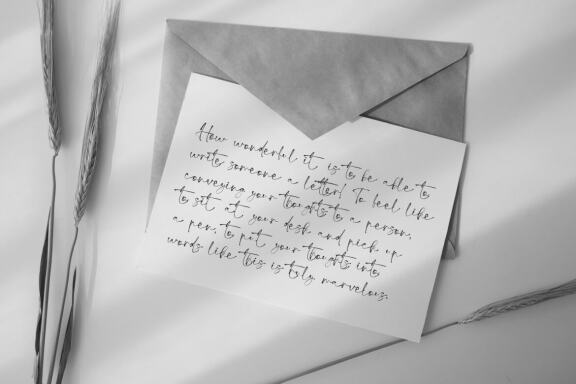 How wonderful it is to be able to
write someone a letter! To feel like
conveying your thoughts to a person,
to sit at your desk and pick up
a pen, to put your thoughts into
words like this is truly marvelous.